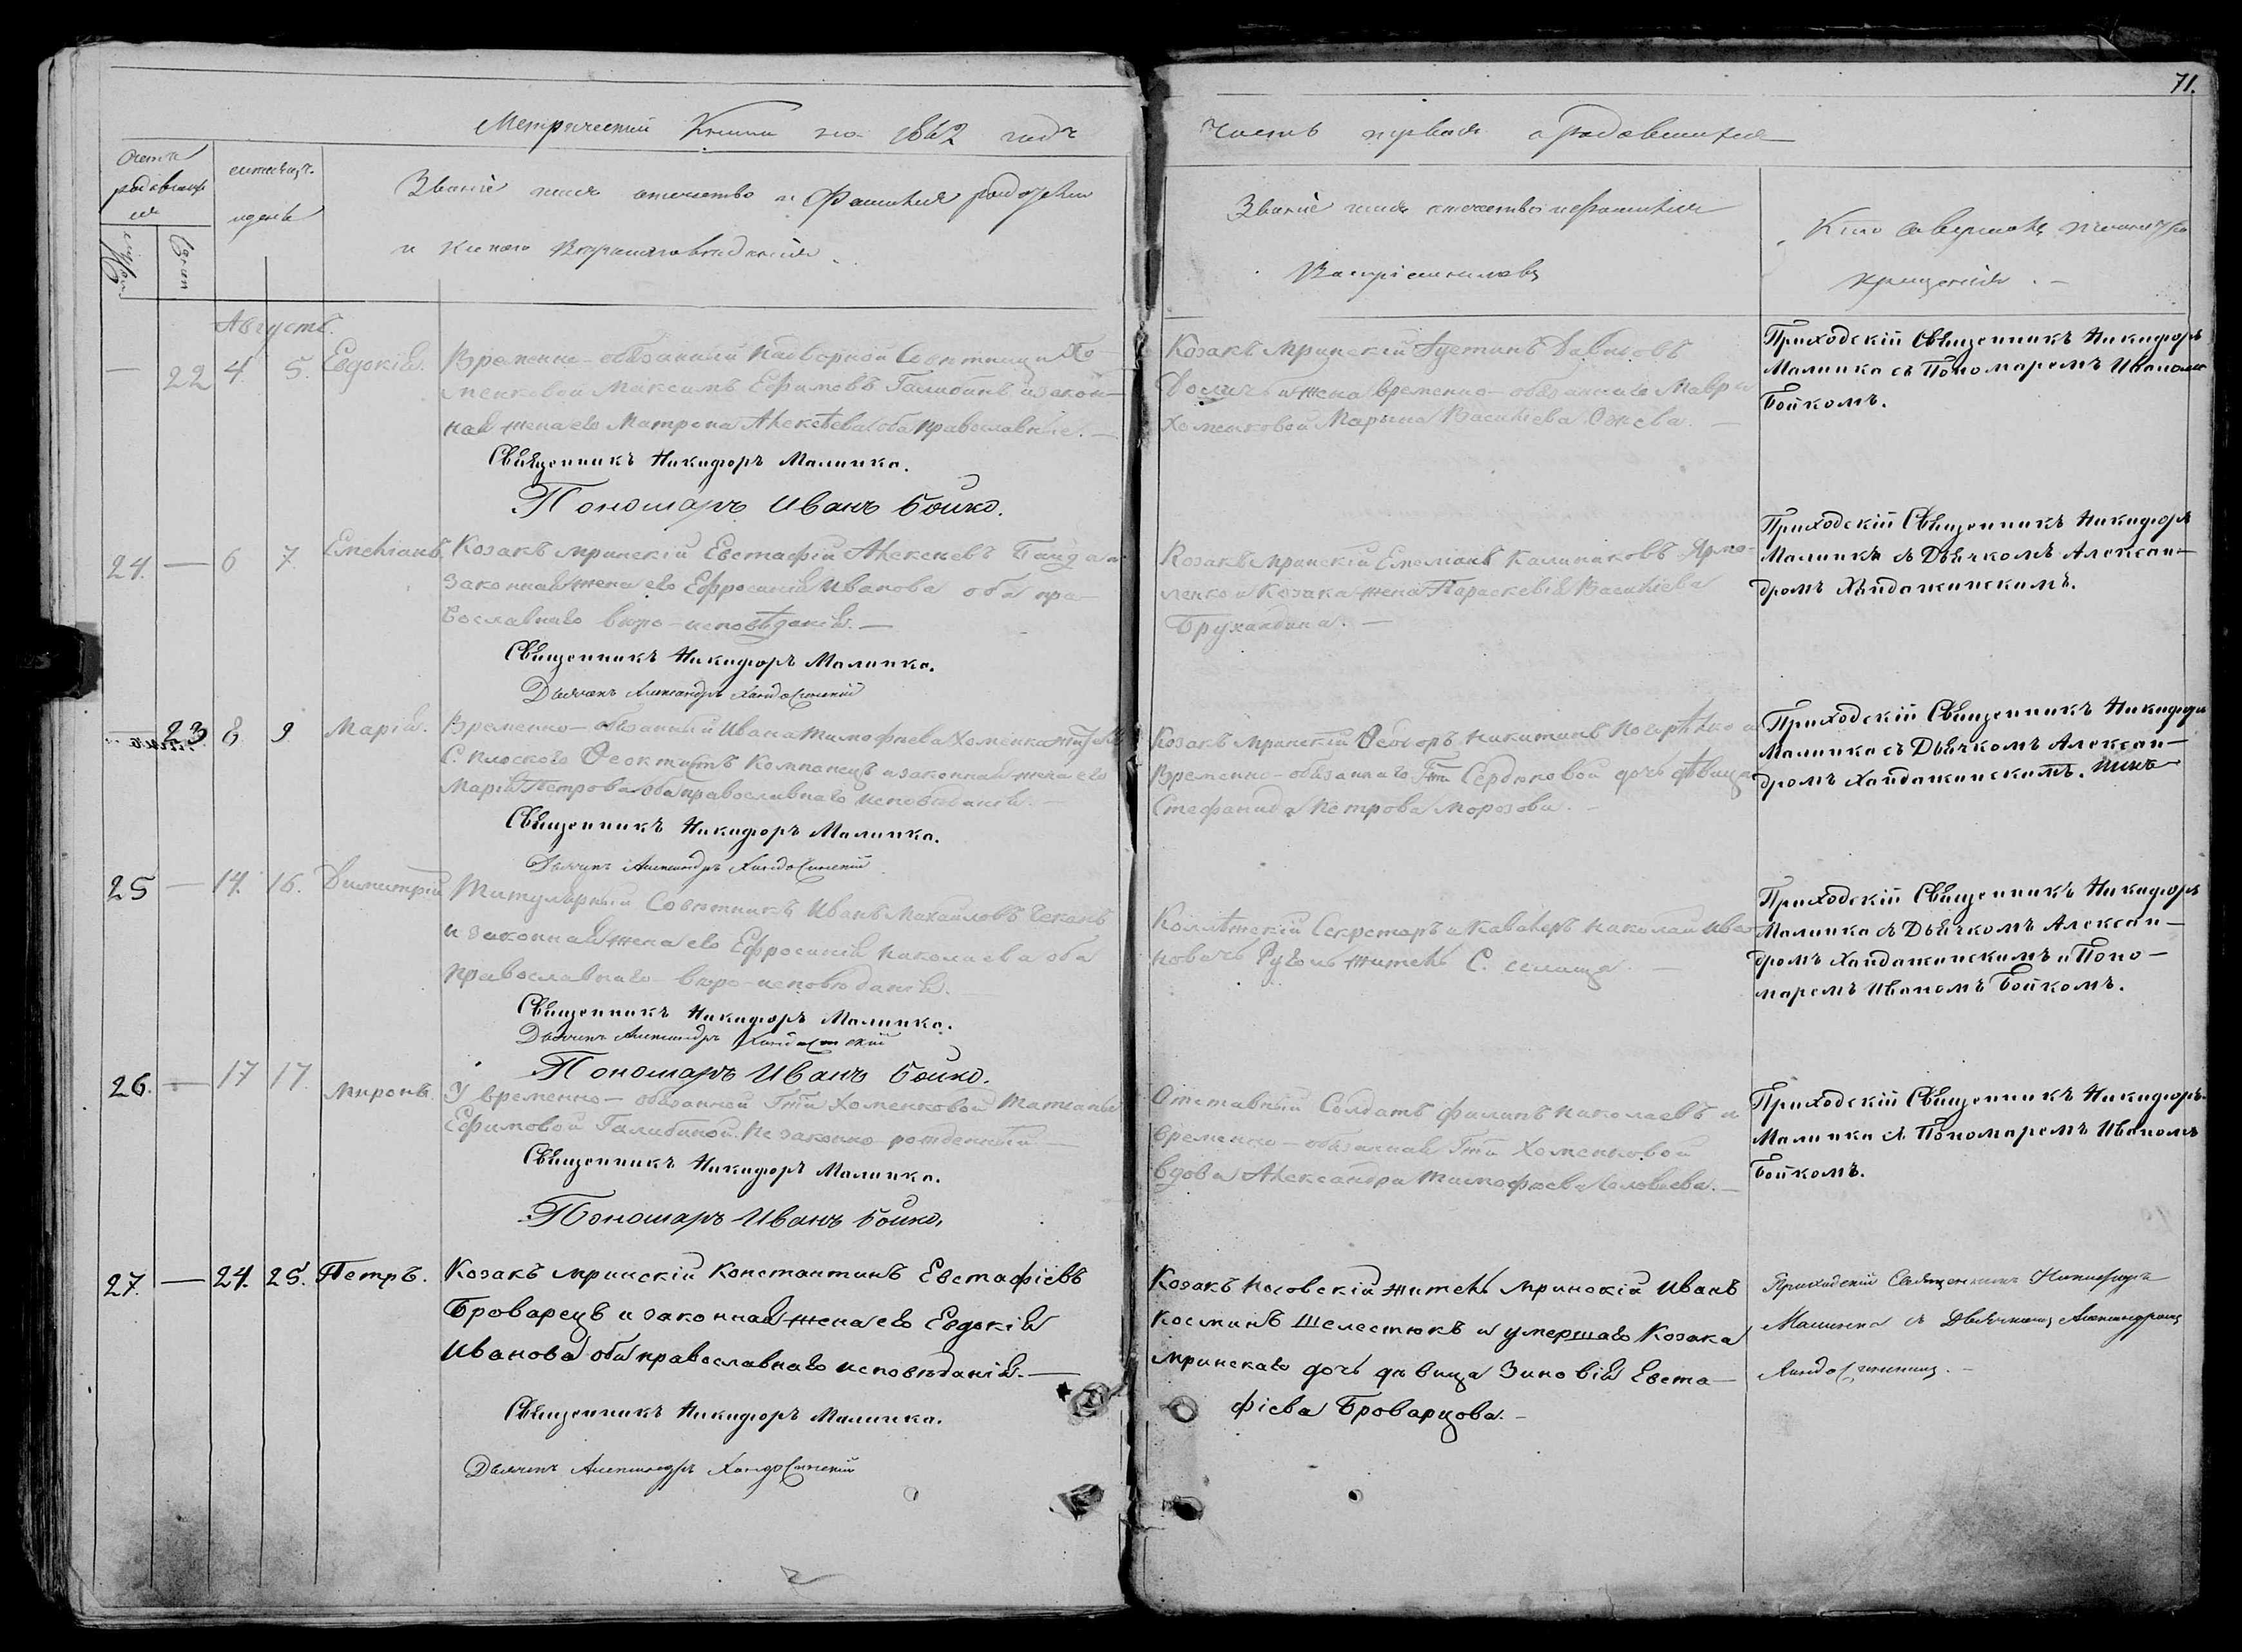 71.
Метрической Книги на 1862 годъ
Часть первая о родившихся
Счетъ родившихся
мѣсяцъ. и день
Званіе имя отчество и Фамилія родителей
и какого Вѣроисповѣданія.
Званіе имя отчество и Фамилія
Воспріемниковъ
Кто совершалъ таинство
крещенія. —
Августъ.
— 22 4. 5. Евдокія.
Временно-обязанный Надворной Совѣтницы Хо-
менковой Максимъ Ефимовъ Галибинъ и закон-
ная жена его Матрона Алексѣева оба православные. —
Священникъ Никифоръ Малинка.
Пономарь Иванъ Бойко.
Козакъ Мринскій Іустинъ Давидовъ
и жена временно-обязаннаго
Хоменковой Марына Василіева —
Приходскій Священникъ Никифоръ
Малинка съ Пономаремъ Иваномъ
Бойкомъ.
24. — 6 7. Емеліанъ.
Козакъ Мринскій Евстафій Алексѣевъ
законная жена его Ефросинія Иванова оба пра-
вославнаго вѣро-исповѣданія. —
Священникъ Никифоръ Малинка.
Дьячекъ Александръ Хандажинскій
Козакъ Мринскій Емеліанъ Калиниковъ Ярмо-
ленко и Козака жена Параскевія Василіева
Брухандина. —
Приходскій Священникъ Никифоръ
Малинка съ Дьячкомъ Алексан-
дромъ Хандажинскимъ.
23 8 9 Марія.
Временно-обязанный Ивана Тимофѣева Хоменка
С. Плоского Ѳеоктистъ Компанецъ и законная жена его
Марія Петрова оба православнаго исповѣданія. —
Священникъ Никифоръ Малинка.
Дьячекъ Александръ Хандажинскій
Козакъ Мринскій Ѳеодоръ Никитинъ и
Временно-обязаннаго Гжи Сердюковой дочь дѣвица
Стефанида Петрова Морозова. —
Приходскій Священникъ Никифоръ
Малинка съ Дьячкомъ Алексан-
дромъ Хандажинскимъ.
25 — 14. 16. Димитрій
Титулярный Совѣтникъ Иванъ Михайловъ
и законная жена его Ефросинія Николаева оба
православнаго вѣро-исповѣданія.
Священникъ Никифоръ Малинка.
Дьячекъ Александръ Хандажинскій
Пономарь Иванъ Бойко.
Коллѣжскій Секретарь и Кавалеръ Николай Ива-
новичъ житель С. селища. —
Приходскій Священникъ Никифоръ
Малинка съ Дьячкомъ Алексан-
дромъ Хандажинскимъ и Поно-
маремъ Иваномъ Бойкомъ.
26. — 17 17. Миронъ.
У временно-обязанной Гжи Хоменковой Татіаны
Ефимовой Галибиной. Незаконно рожденный —
Священникъ Никифоръ Малинка.
Пономарь Иванъ Бойко.
Отставный Солдатъ Филипъ Николаевъ и
временно-обязанная Гжи Хоменковой
вдова Александра Тимофѣева Соловьева. —
Приходскій Священникъ Никифоръ
Малинка съ Пономаремъ Иваномъ
Бойкомъ.
27. — 24. 25. Петръ.
Козакъ Мринскій Константинъ Евстафіевъ
Броварецъ и законная жена его Евдокія
Иванова оба православнаго исповѣданія. —
Священникъ Никифоръ Малинка.
Дьячекъ Александръ Хандажинскій
Козакъ Носовскій житель Мринскій Иванъ
Косминъ Шелестюкъ и умершаго Козака
Мринскаго дочь дѣвица Зиновія Евста-
фіева Броварцова. —
Приходскій Священникъ Никифоръ
Малинка съ Дьячкомъ Александромъ
Хандажинскимъ. —